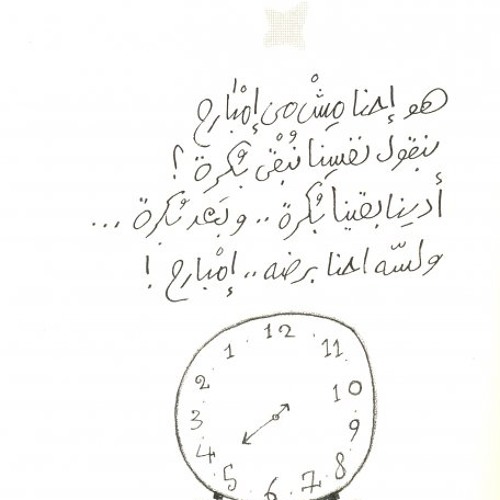 هو إحنا مِشْ من إمْبَارح
بنقول نفسِنا نُبْقَى بُكْرة ؟
أدينا بقينا بُكْرة .. وبَعْد بُكْرة ...
ولسّه احنا برضه .. إمْبَارح !
12
1 11
2 10
3 9
4 8
5 6 7